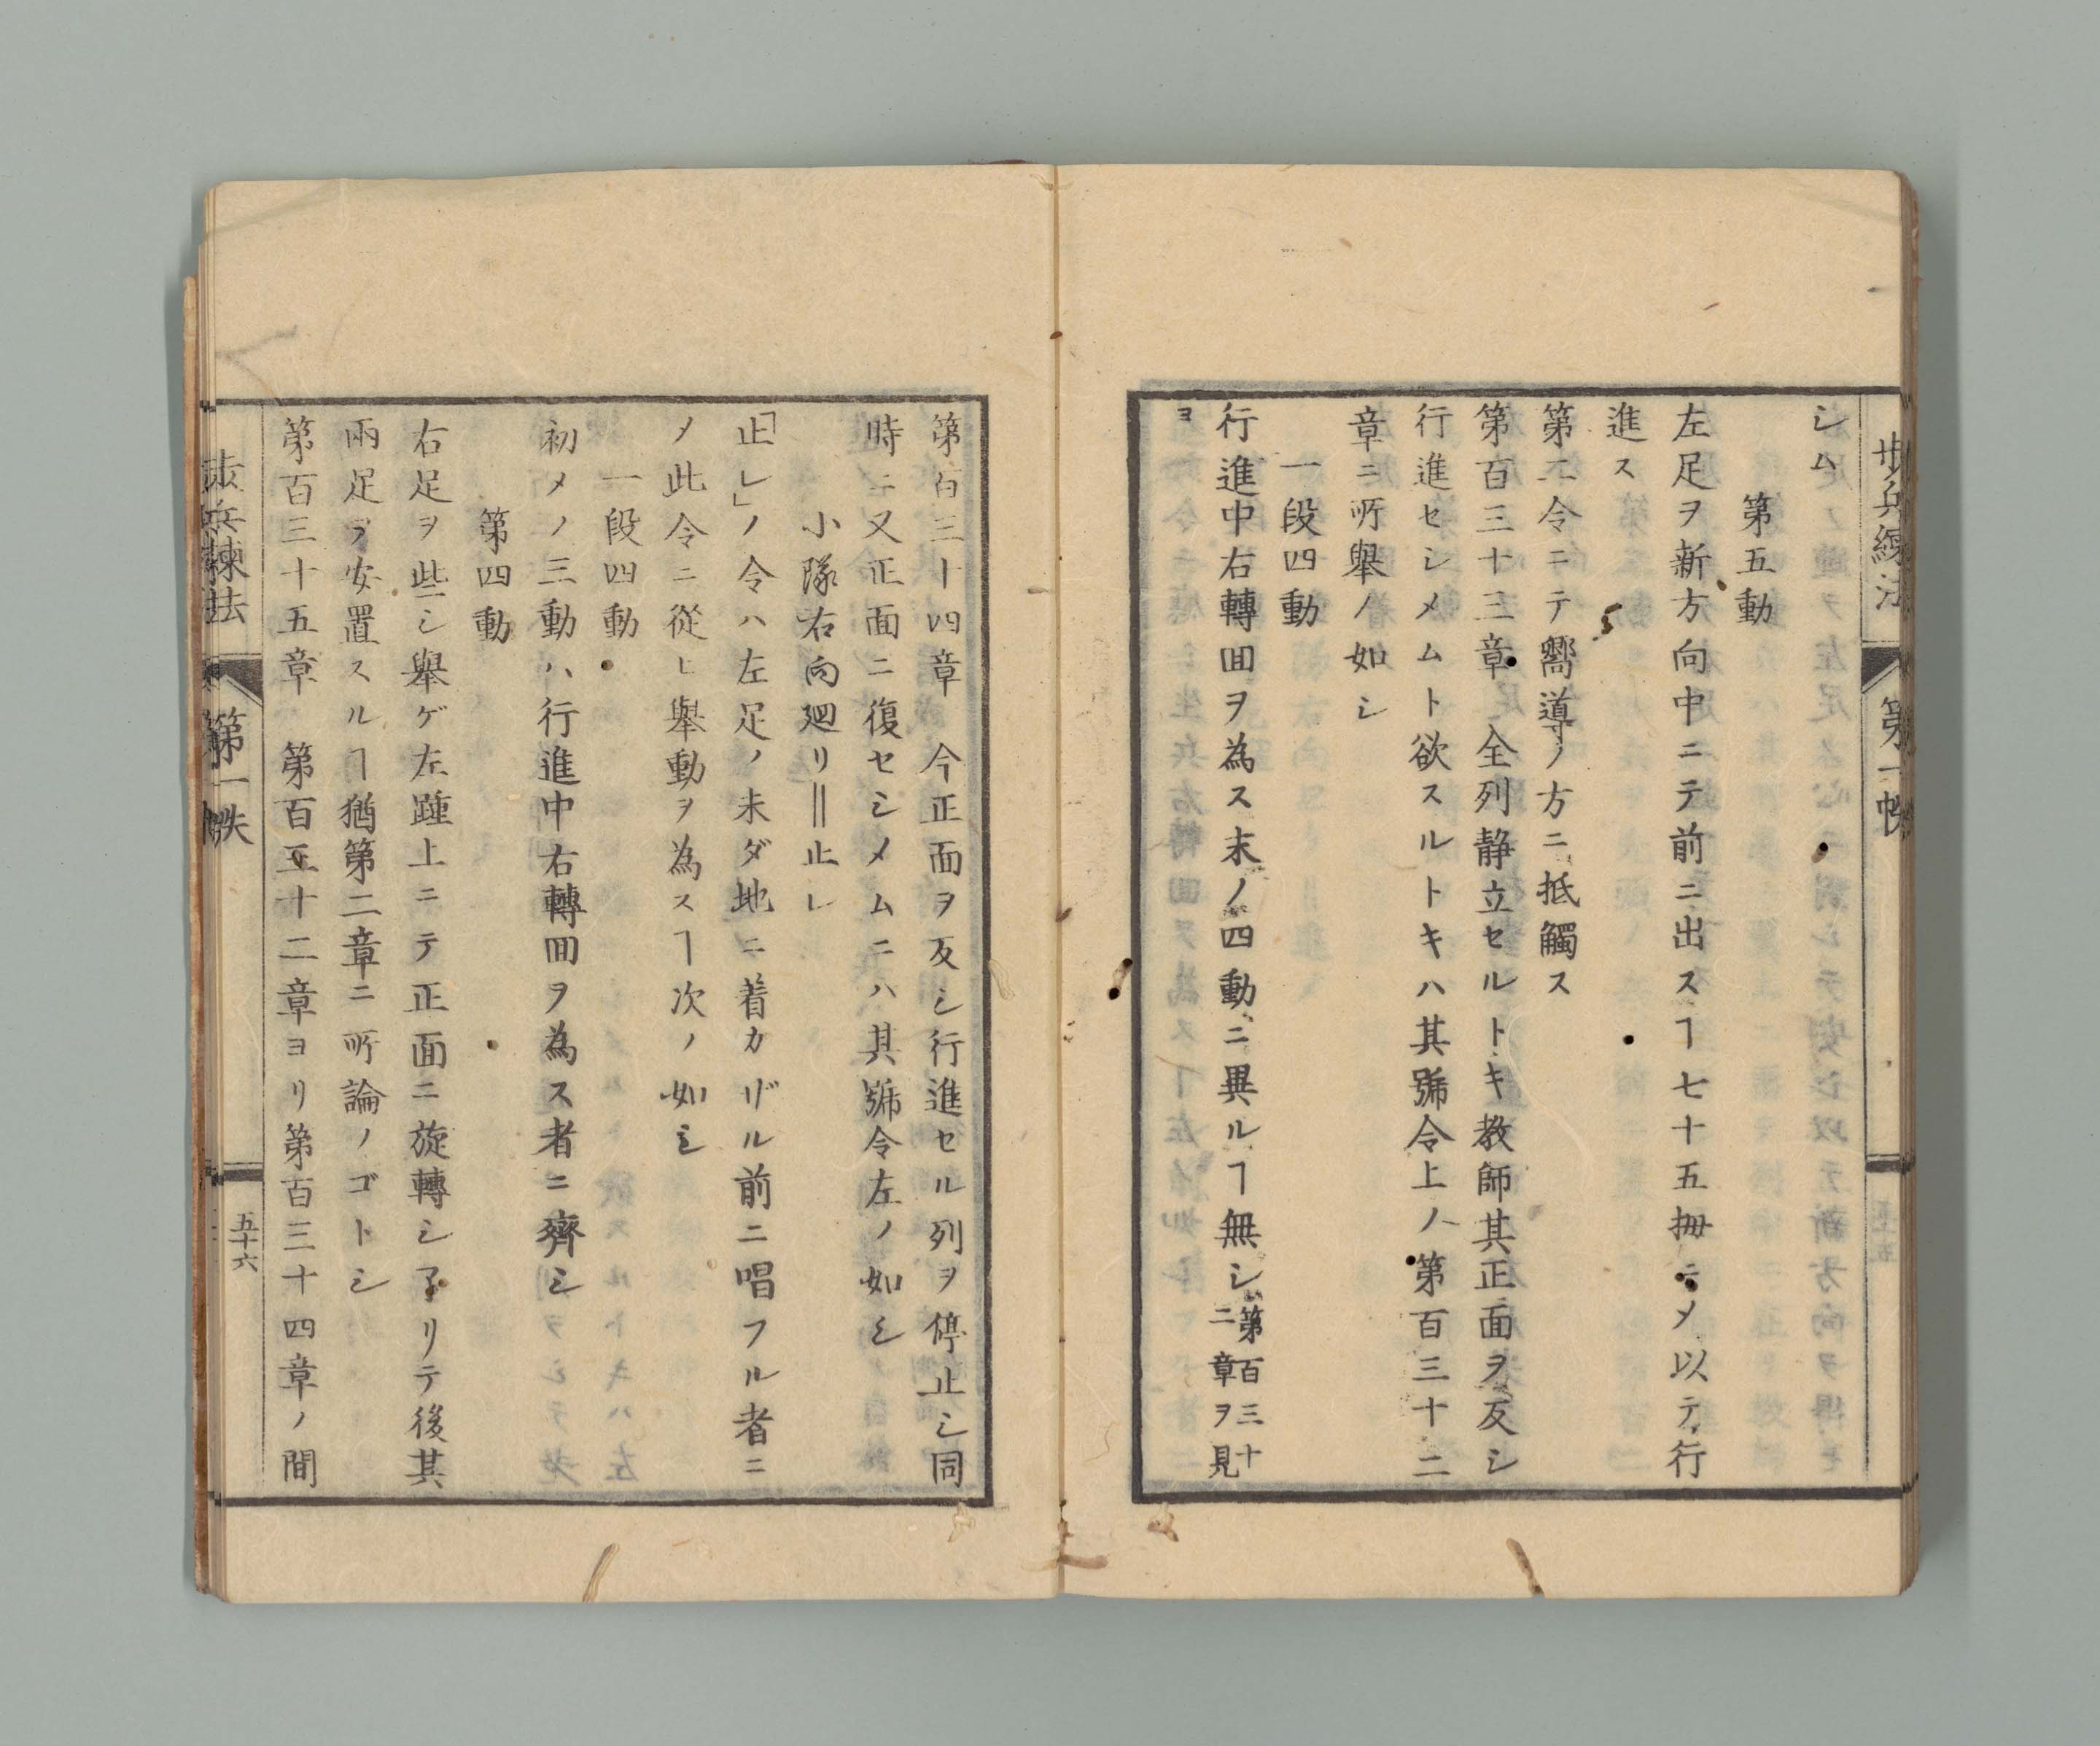 歩兵練法 第一帙
シム
第五動
左足ヲ新方向中ニテ前ニ出スヿ七十五拇ニメ以テ行
進ス
第二令ニテ嚮導ノ方ニ抵觸ス
第百三十三章 全列静立セルトキ教師其正面ヲ反シ
行進セシメムト欲スルトキハ其號令上ノ第百三十二
章ニ所舉ノ如シ
一段四動
行進中右轉囬ヲ為ス末ノ四動ニ異ルヿ無シ第百三十
二章ヲ見
ヨ
第百三十四章 今正面ヲ反シ行進セル列ヲ停止シ同
時ニ又正面ニ復セシメムニハ其號令左ノ如シ
小隊右向廻リ‖止レ
「止レ」ノ令ハ左足ノ未ダ地ニ着カザル前ニ唱フル者ニ
ノ此令ニ從ヒ舉動ヲ為スヿ次ノ如シ
一段四動
初メノ三動ハ行進中右轉囬ヲ為ス者ニ齊シ
第四動
右足ヲ些シ舉ゲ左踵上ニテ正面ニ旋轉シ了リテ後其
兩足ヲ安置スルヿ猶第二章ニ所論ノゴトシ
第百三十五章 第百五十二章ヨリ第百三十四章ノ間
歩兵練法 第一帙 五十六